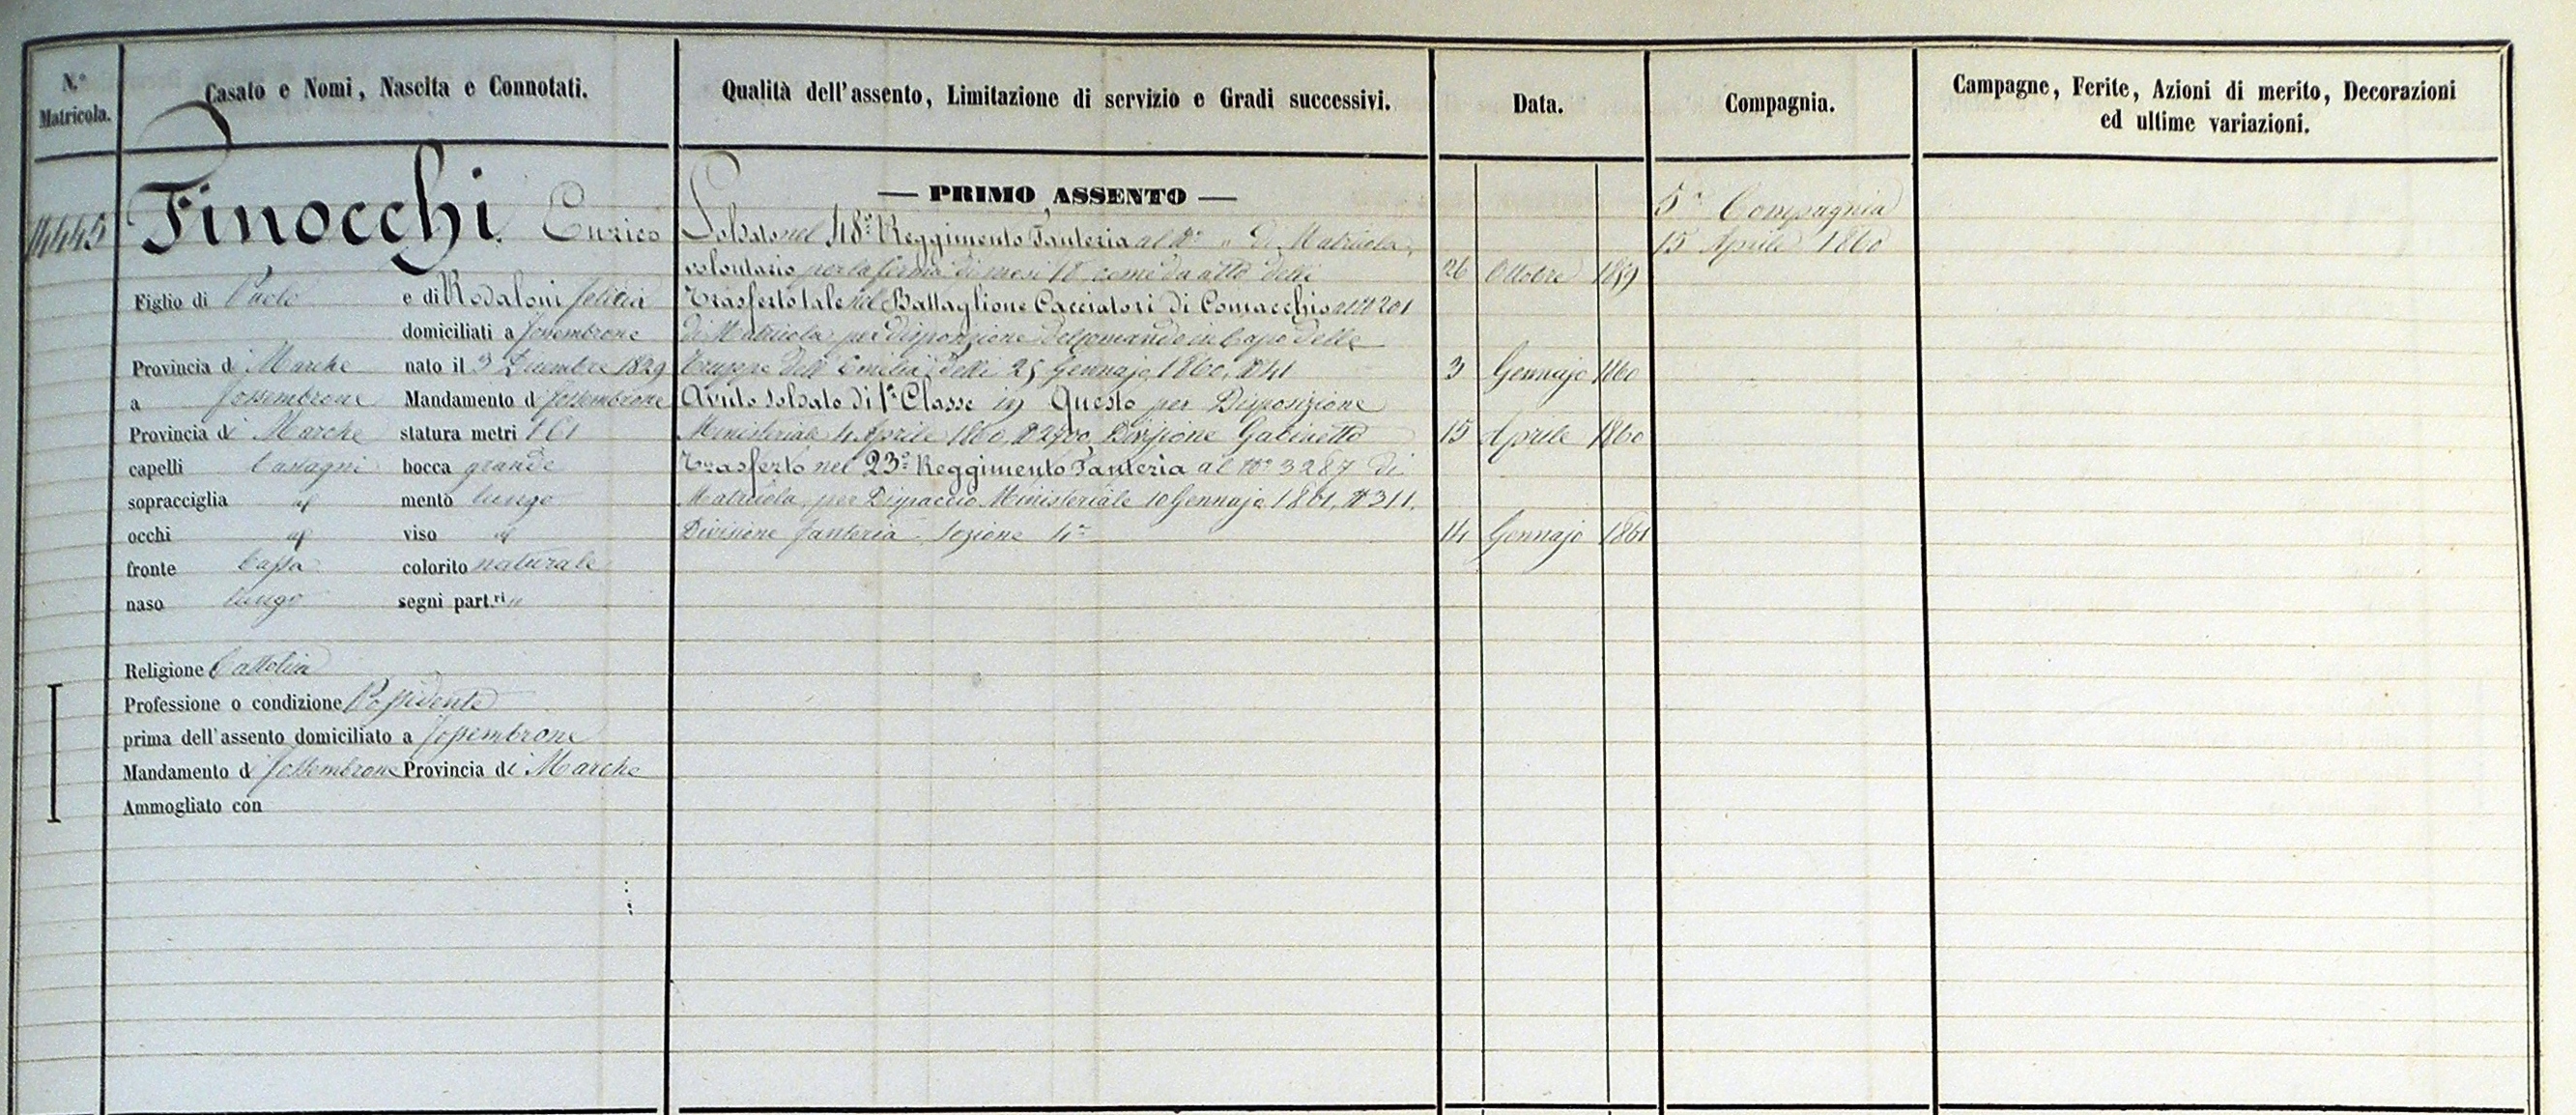 N.° Matricola.
Casato e Nomi, Nascita e Connotati.
Qualità dell'assento, Limitazione di servizio e Gradi successivi.
Data.
Compagnia.
Campagne, Ferite, Azioni di merito, Decorazioni
ed ultime variazioni.
14445
Finocchi Enrico
Figlio di Paolo e di Rodaloni Felicia
domiciliati a Fossembrone
Provincia di Marche nato il 3 Dicembre 1829
a Fossembrone Mandamento di Fossembrone
Provincia di Marche statura metri 1 61
capelli Castagni bocca grande
sopracciglia id mento lungo
occhi id viso id
fronte bassa colorito naturale
naso lungo segni part.ri "
Religione Cattolica
Professione o condizione Possidente
prima dell'assento domiciliato a Fossembrone
Mandamento di Fossembrone Provincia di Marche
Ammogliato con
— PRIMO ASSENTO —
Soldato nel 48° Reggimento Fanteria al N° " di Matricola,
volontario per la ferma di mesi 18 come da atto delli 26 Ottobre 1859
Trasferto tale nel Battaglione Cacciatori di Comacchio al N 201
di Matricola per disposizione del Comando in Capo delle
truppe dell'Emilia delli 25 Gennajo 1860, N 41 3 Gennajo 1860
Avuto Soldato di 1ª Classe in Questo per Disposizione
Ministeriale 4 Aprile 1860 N 2700 Divisione Gabinetto 15 Aprile 1860
Trasferto nel 23° Reggimento Fanteria al N° 3287 di
Matricola, per Dispaccio Ministeriale 10 Gennajo 1861, N 311.
Divisione fanteria Sezione 4ª 14 Gennajo 1861
5ª Compagnia
15 Aprile 1860